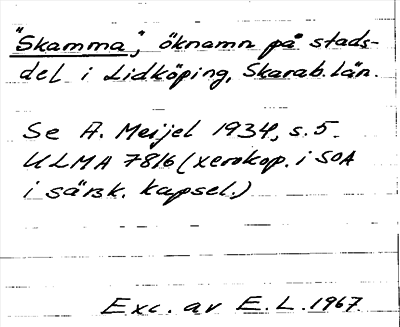 "Skamma", öknamn på stads-
del i Lidköping, Skarab. län.
Se A. Meijel 1934, s. 5.
ULMA 7816 (xerokop. i SOA
i särsk. kapsel.)
Exc. av E. L. 1967